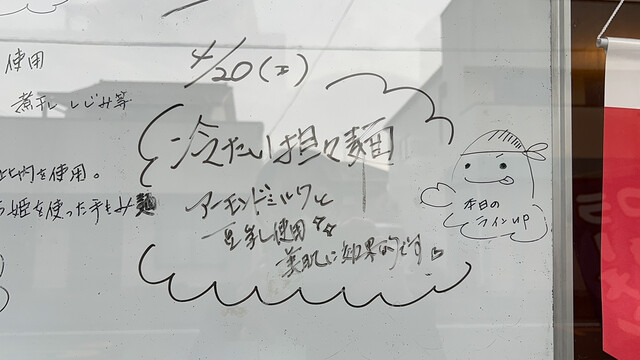 使用
煮干し しじみ等
4/20(土)
冷たい担々麺
比内を使用。
姫を使った手もみ麺
アーモンドミルクと
豆乳使用
美肌に効果的です
本日の
ラインUP